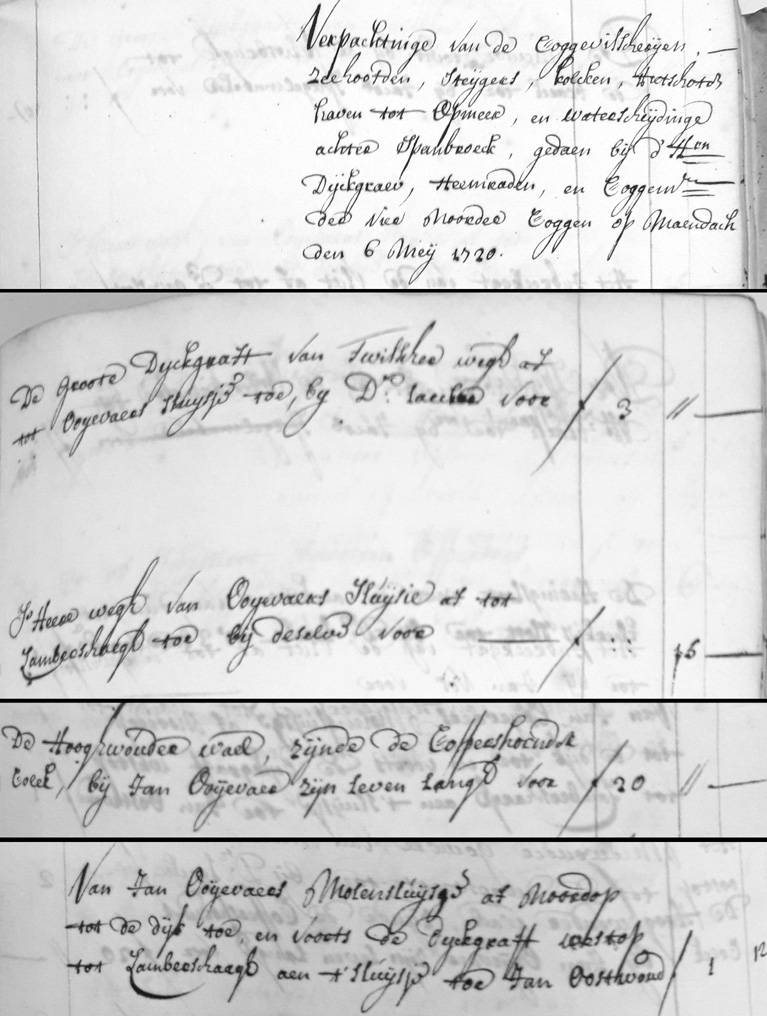 Verpachtinge van de Coggevisscherÿen,
Zeehoofden, Steygers, kolcken,
haven tot Opmeer, en waterscheÿdinge
achter Spanbroeck, gedaen bÿ d'Hrn
Dÿckgraev, Heemraden, en Coggem:rs
der vier Noorder Coggen op Maendach
den 6 Meÿ 1720.
De groote Dyckgraft van Twisker wegh af
tot Ooyevaers Sluysje toe, by Do. voor f 3 „ —
Heere wegh van Ooyevaers Sluÿsie af tot
Lambeschaegh toe bÿ deselve voor — f : : 15 —
De Hoogwouder wael, zÿnde de
Colck, bÿ Jan Oÿevaer zÿn leven langh voor f 20 „ —
Van Jan Oÿevaers Molensluÿsje af Noordop
tot de dÿk toe, en voorts de Dyckgraft westop
tot Lambeschaegh aen t'Sluÿsje toe Jan Oostwoud f 1 12